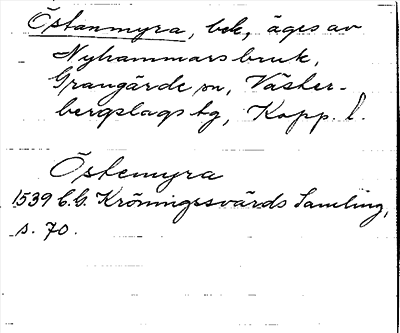 Östanmyra, bek, äges av
Nyhammars bruk,
Grangärde sn, Väster-
bergslags tg, Kopp. l.
Östemyra
1539 C.G. Kröningssvärds Samling,
s. 70.